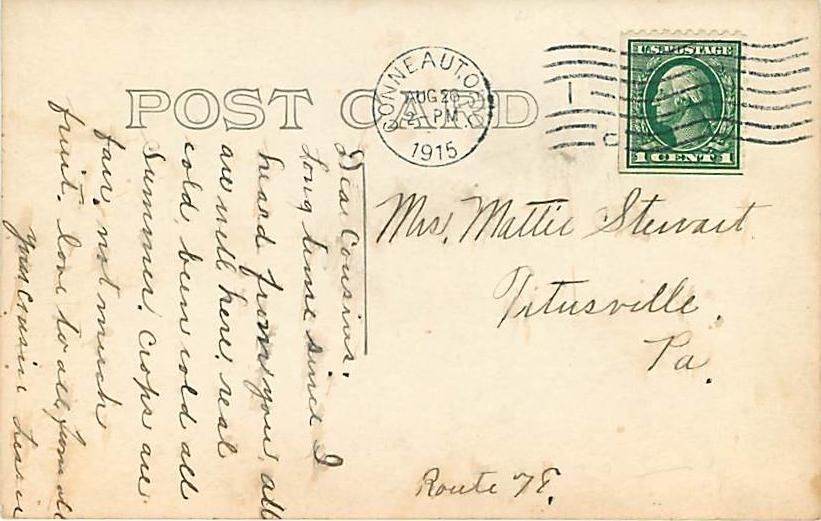 POST CARD
CONNEAUT, O.
AUG 20
2 - PM
1915
U.S. POSTAGE
1 CENT 1
Dear Cousins.
Long time since I
heard from you, all
are well here, real
cold, been cold all
Summer. Crops are
fair, not much
fruit. love to all, from all
your Cousin
Mrs. Mattie Stewart
Titusville,
Pa.
Route